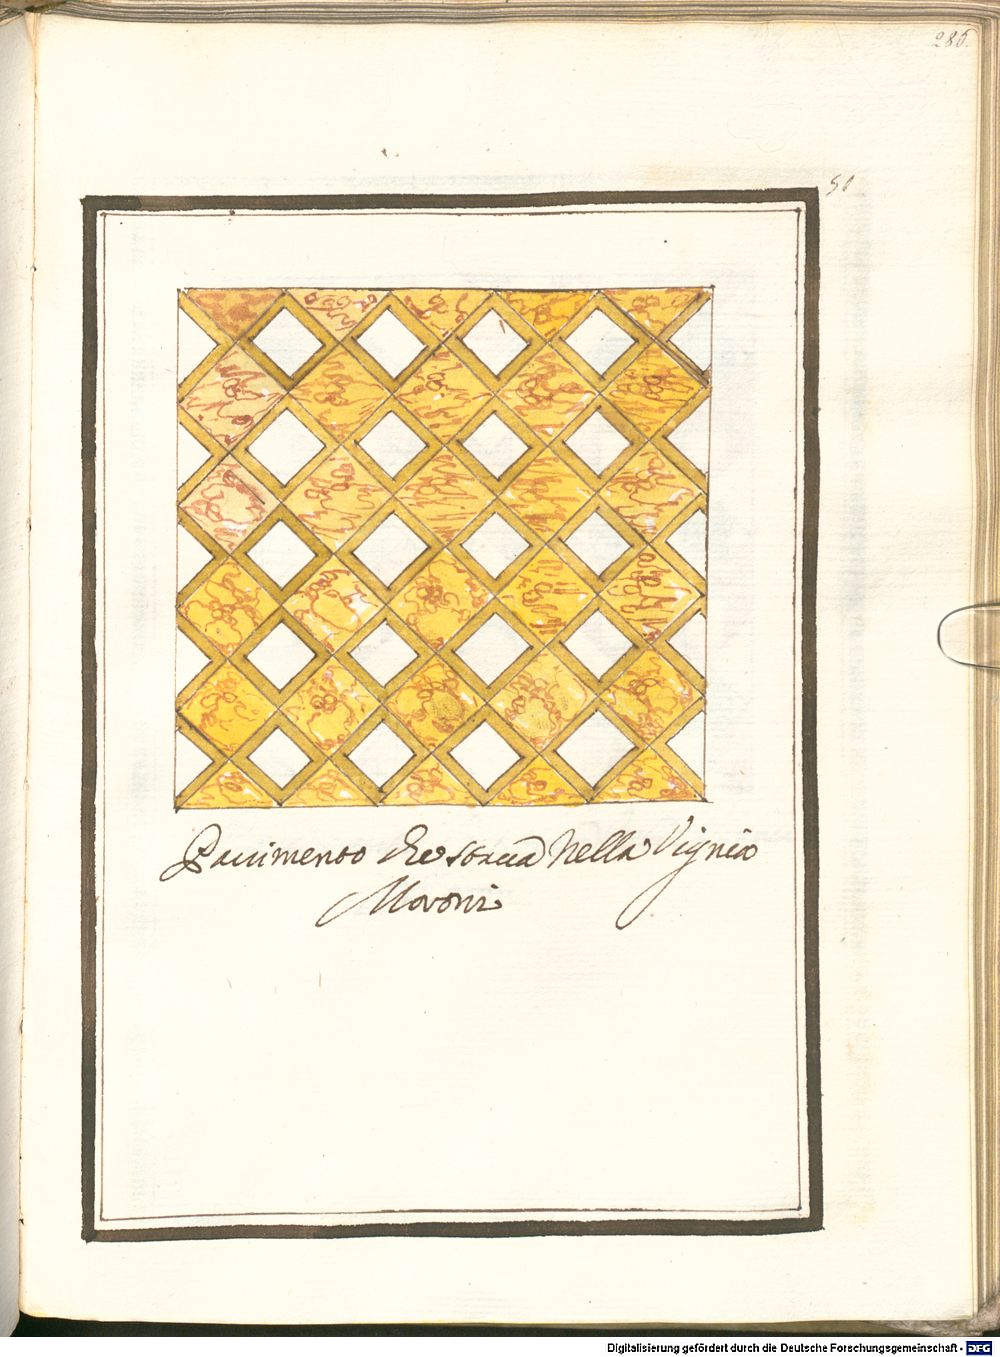 285.
51
Pauimento che staua Nella Vignia
Moroni
Digitalisierung gefördert durch die Deutsche Forschungsgemeinschaft - DFG